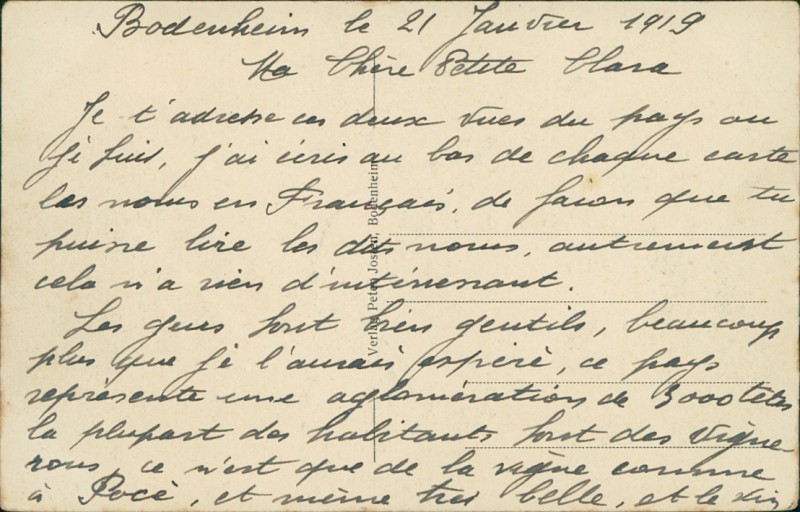 Bodenheim le 21 Janvier 1919
Ma Chère Petite Clara
Je t'adresse ces deux vues du pays ou
je suis, j'ai écris au bas de chaque carte
les noms en Français, de facon que tu
puisse lire les dits noms, autrement
cela n'a rien d'intéressant.
Les gens sont bien gentils, beaucoup
plus que je l'aurais espéré, ce pays
représente une aglomération de 3000 têtes
la plupart des habitants sont des vigne
rons, ce n'est que de la vigne comme
à Pocé, et même très belle, et le vin
Verlag Peter Josten, Bodenheim